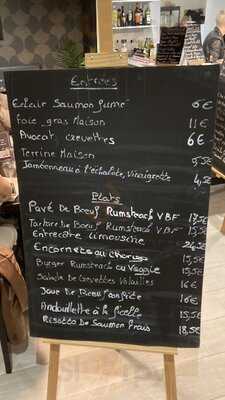 Entrées
Eclair Saumon fumé 6€
Foie gras Maison 11€
Avocat crevettes 6€
Terrine Maison 5,50
Jambonneau à l'échalote, Vinaigrette 4,50
Plats
Pavé De Bœuf Rumsteack VBF 17,5€
Tartare De Bœuf Rumsteack VBF 15,5€
Entrecôte Limousine 24,50
Encornets au chorizo 15,5€
Burger Rumsteack ou Veggie 15,5€
Salade De Crevettes Volailles 16€
Joue De Bœuf confite 16€
Andouillette à la ficelle 15,5€
Risotto De Saumon frais 18,5€